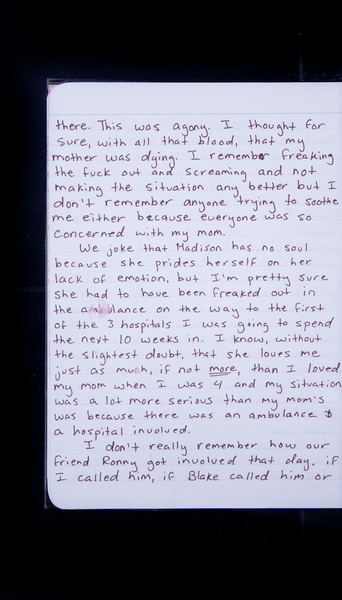 there. This was agony. I thought for
sure, with all that blood, that my
mother was dying. I remember freaking
the fuck out and screaming and not
making the situation any better but I
don't remember anyone trying to soothe
me either because everyone was so
concerned with my mom.
We joke that Madison has no soul
because she prides herself on her
lack of emotion, but I'm pretty sure
she had to have been freaked out in
the ambulance on the way to the first
of the 3 hospitals I was going to spend
the next 10 weeks in. I know, without
the slightest doubt, that she loves me
just as much, if not more, than I loved
my mom when I was 4 and my situation
was a lot more serious than my mom's
was because there was an ambulance &
a hospital involved.
I don't really remember how our
friend Ronny got involved that day. if
I called him, if Blake called him or